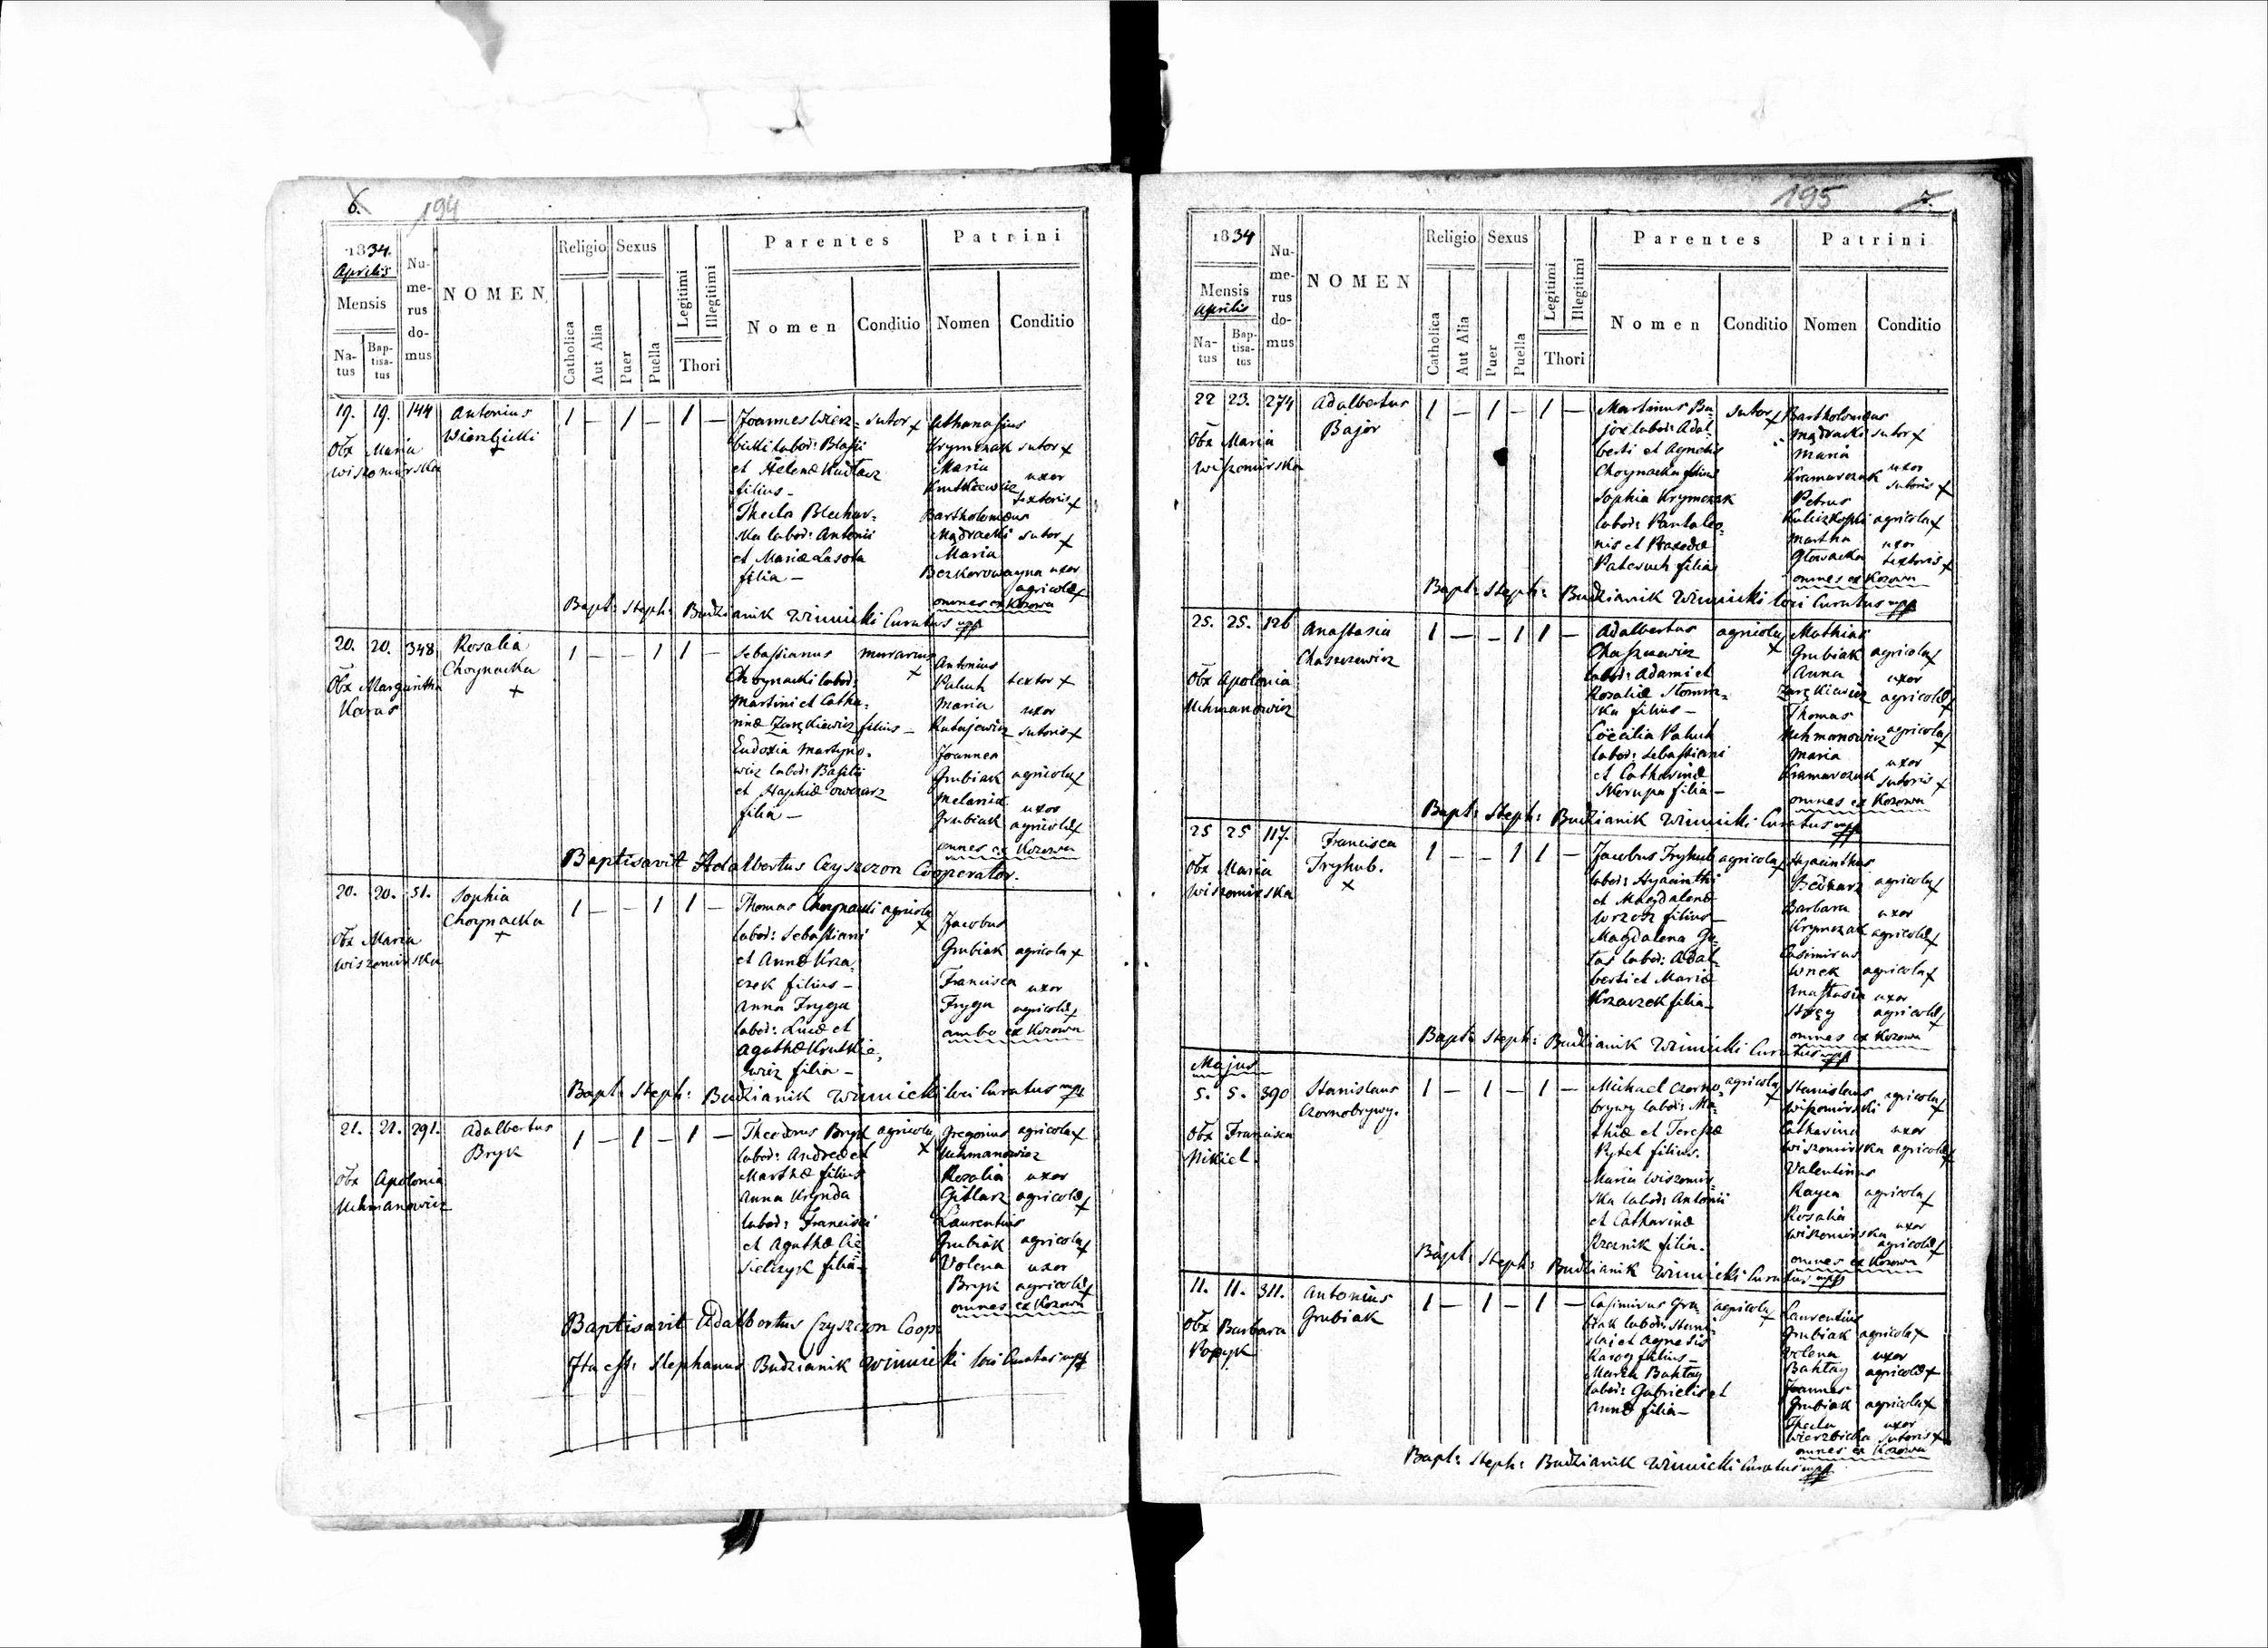 6. 194
1834.
Aprilis
Mensis
Natus
Baptisatus
Numerus domus
NOMEN
Religio
Catholica
Aut Alia
Sexus
Puer
Puella
Legitimi
Illegitimi
Thori
Parentes
Nomen
Conditio
Patrini
Nomen
Conditio
19. 19. 144
Obx Maria
Wiszomirska
Antonius
Wierzbicki
+
1 — 1 — 1 —
Joannes Wierz=
bicki labor: Blasii
et Helenæ
filius —
Thecla Blechar=
ska labor: Antonii
et Mariæ Lasota
filia —
sutor +
Athanasius
Krymczak sutor +
Maria
Krutkiewicz uxor
textoris +
Bartholomæus
Mądracki sutor +
Maria
Bezkorowayna uxor
agricolæ +
omnes ex Kozowa
Bapt: Steph: Budzianik Winnicki Curatus mpp
20. 20. 348
Obx Margaritha
Karas
Rosalia
Choynacka
+
1 — — 1 1 —
Sebastianus
Choynacki labor:
Martini et Catha=
rinæ Zarzkiewicz filius —
Eudoxia Martyno=
wicz labor: Basilii
et owczarz
filia —
murarius
+
Antonius
Pakuh textor +
Maria uxor
sutoris +
Joannes
Grubiak agricola +
Melania uxor
Grubiak agricolæ +
omnes ex Kozowa
Baptisavit Adalbertus Czyszczon Cooperator.
20. 20. 51.
Obx Maria
Wiszomirska
Sophia
Choynacka
+
1 — — 1 1 —
Thomas Choynacki agricola
+
labor: Sebastiani
et Annæ Krza=
czek filius —
Anna Fryga
labor: Lucæ et
Agathæ Krutkie=
wicz filia —
Jacobus
Grubiak agricola +
Francisca uxor
Fryga agricolæ +
ambo ex Kozowa
Bapt: Steph: Budzianik Winnicki loci Curatus mpp
21. 21. 291.
Obx Apolonia
Uchmanowicz
Adalbertus
Bryk
1 — 1 — 1 —
Theodorus Bryk agricola
+
labor: Andreæ et
Marthæ filius
Anna
labor: Francisci
et Agathæ Cie=
sielczyk filia —
Gregorius agricola +
Uchmanowicz
Rosalia uxor
Gitlarz agricolæ +
Laurentius
Grubiak agricola +
Volena uxor
Bryk agricolæ +
omnes ex Kozowa
Baptisavit Adalbertus Czyszczon Coop:
Ita est: Stephanus Budzianik Winnicki loci Curatus mpp
195 7.
1834
Mensis
Aprilis
Natus
Baptisatus
Numerus domus
NOMEN
Religio
Catholica
Aut Alia
Sexus
Puer
Puella
Legitimi
Illegitimi
Thori
Parentes
Nomen
Conditio
Patrini
Nomen
Conditio
22 23. 274
Obx Maria
Wiszomirska
Adalbertus
Bajor
1 — 1 — 1 —
Martinus Ba=
jor labor: Adal=
berti et Agnetis
Choynacka filius
Sophia Krymczak
labor: Pantaleo=
nis et Praxedæ
filia
sutor +
Bartholomæus
Mądracki sutor +
Maria
Kramarczuk uxor
sutoris +
Petrus
agricola +
Martha uxor
Głowacka textoris +
omnes ex Kozowa
Bapt: Steph: Budzianik Winnicki loci Curatus mpp
25. 25. 126
Obx Apolonia
Uchmanowicz
Anastasia
Chaszczewicz
1 — — 1 1 —
Adalbertus agricola
+
Chaszczewicz
labor: Adami et
Rosaliæ
filius —
Cöecilia Pakuh
labor: Sebastiani
et Catharinæ
Skerupa filia —
Mathias
Grubiak agricola +
Anna uxor
Zarzkiewicz agricolæ +
Thomas
Uchmanowicz agricola +
Maria uxor
Kramarczuk sutoris +
omnes ex Kozowa
Bapt: Steph: Budzianik Winnicki Curatus mpp
25 25 117.
Obx Maria
Wiszomirska
Francisca
Tryhub.
+
1 — — 1 1 —
Jacobus Tryhub agricola +
labor: Hyacinthi
et Magdalenæ
Wrzosz filius —
Magdalena Gu=
tas labor: Adal=
berti et Mariæ
Krzaczek filia —
Hyacinthus
Bednarz agricola +
Barbara uxor
Krymczak agricolæ +
Casimirus
Wnek agricola +
Anastasia uxor
agricolæ +
omnes ex Kozowa
Bapt: Steph: Budzianik Winnicki Curatus mpp
Majus
5. 5. 390
Obx Francisca
Nikiel.
Stanislaus
Czornobrywy.
1 — 1 — 1 —
Michael Czorno= agricola
+
brywy labor: Ma=
thiæ et Teressæ
Pytel filius.
Maria Wiszomir=
ska labor: Antonii
et Catharinæ
filia.
Stanislaus
Wiszomirski agricola +
Catharina uxor
Wiszomirska agricolæ +
Valentinus
Rayca agricola +
Rosalia uxor
Wiszomirska agricolæ +
omnes ex Kozowa
Bapt: Steph: Budzianik Winnicki Curatus mpp
11. 11. 311.
Obx Barbara
Popyk
Antonius
Grubiak
1 — 1 — 1 —
Casimirus Gru= agricola +
biak labor: Stanis=
slai et Agnetis
filius —
Maria Bahtay
labor: Gabrielis et
Annæ filia —
Laurentius
Grubiak agricola +
Volena uxor
Bahtay agricolæ +
Joannes
Grubiak agricola +
Thecla uxor
Wierzbicka sutoris +
omnes ex Kozowa
Bapt: Steph: Budzianik Winnicki Curatus mpp